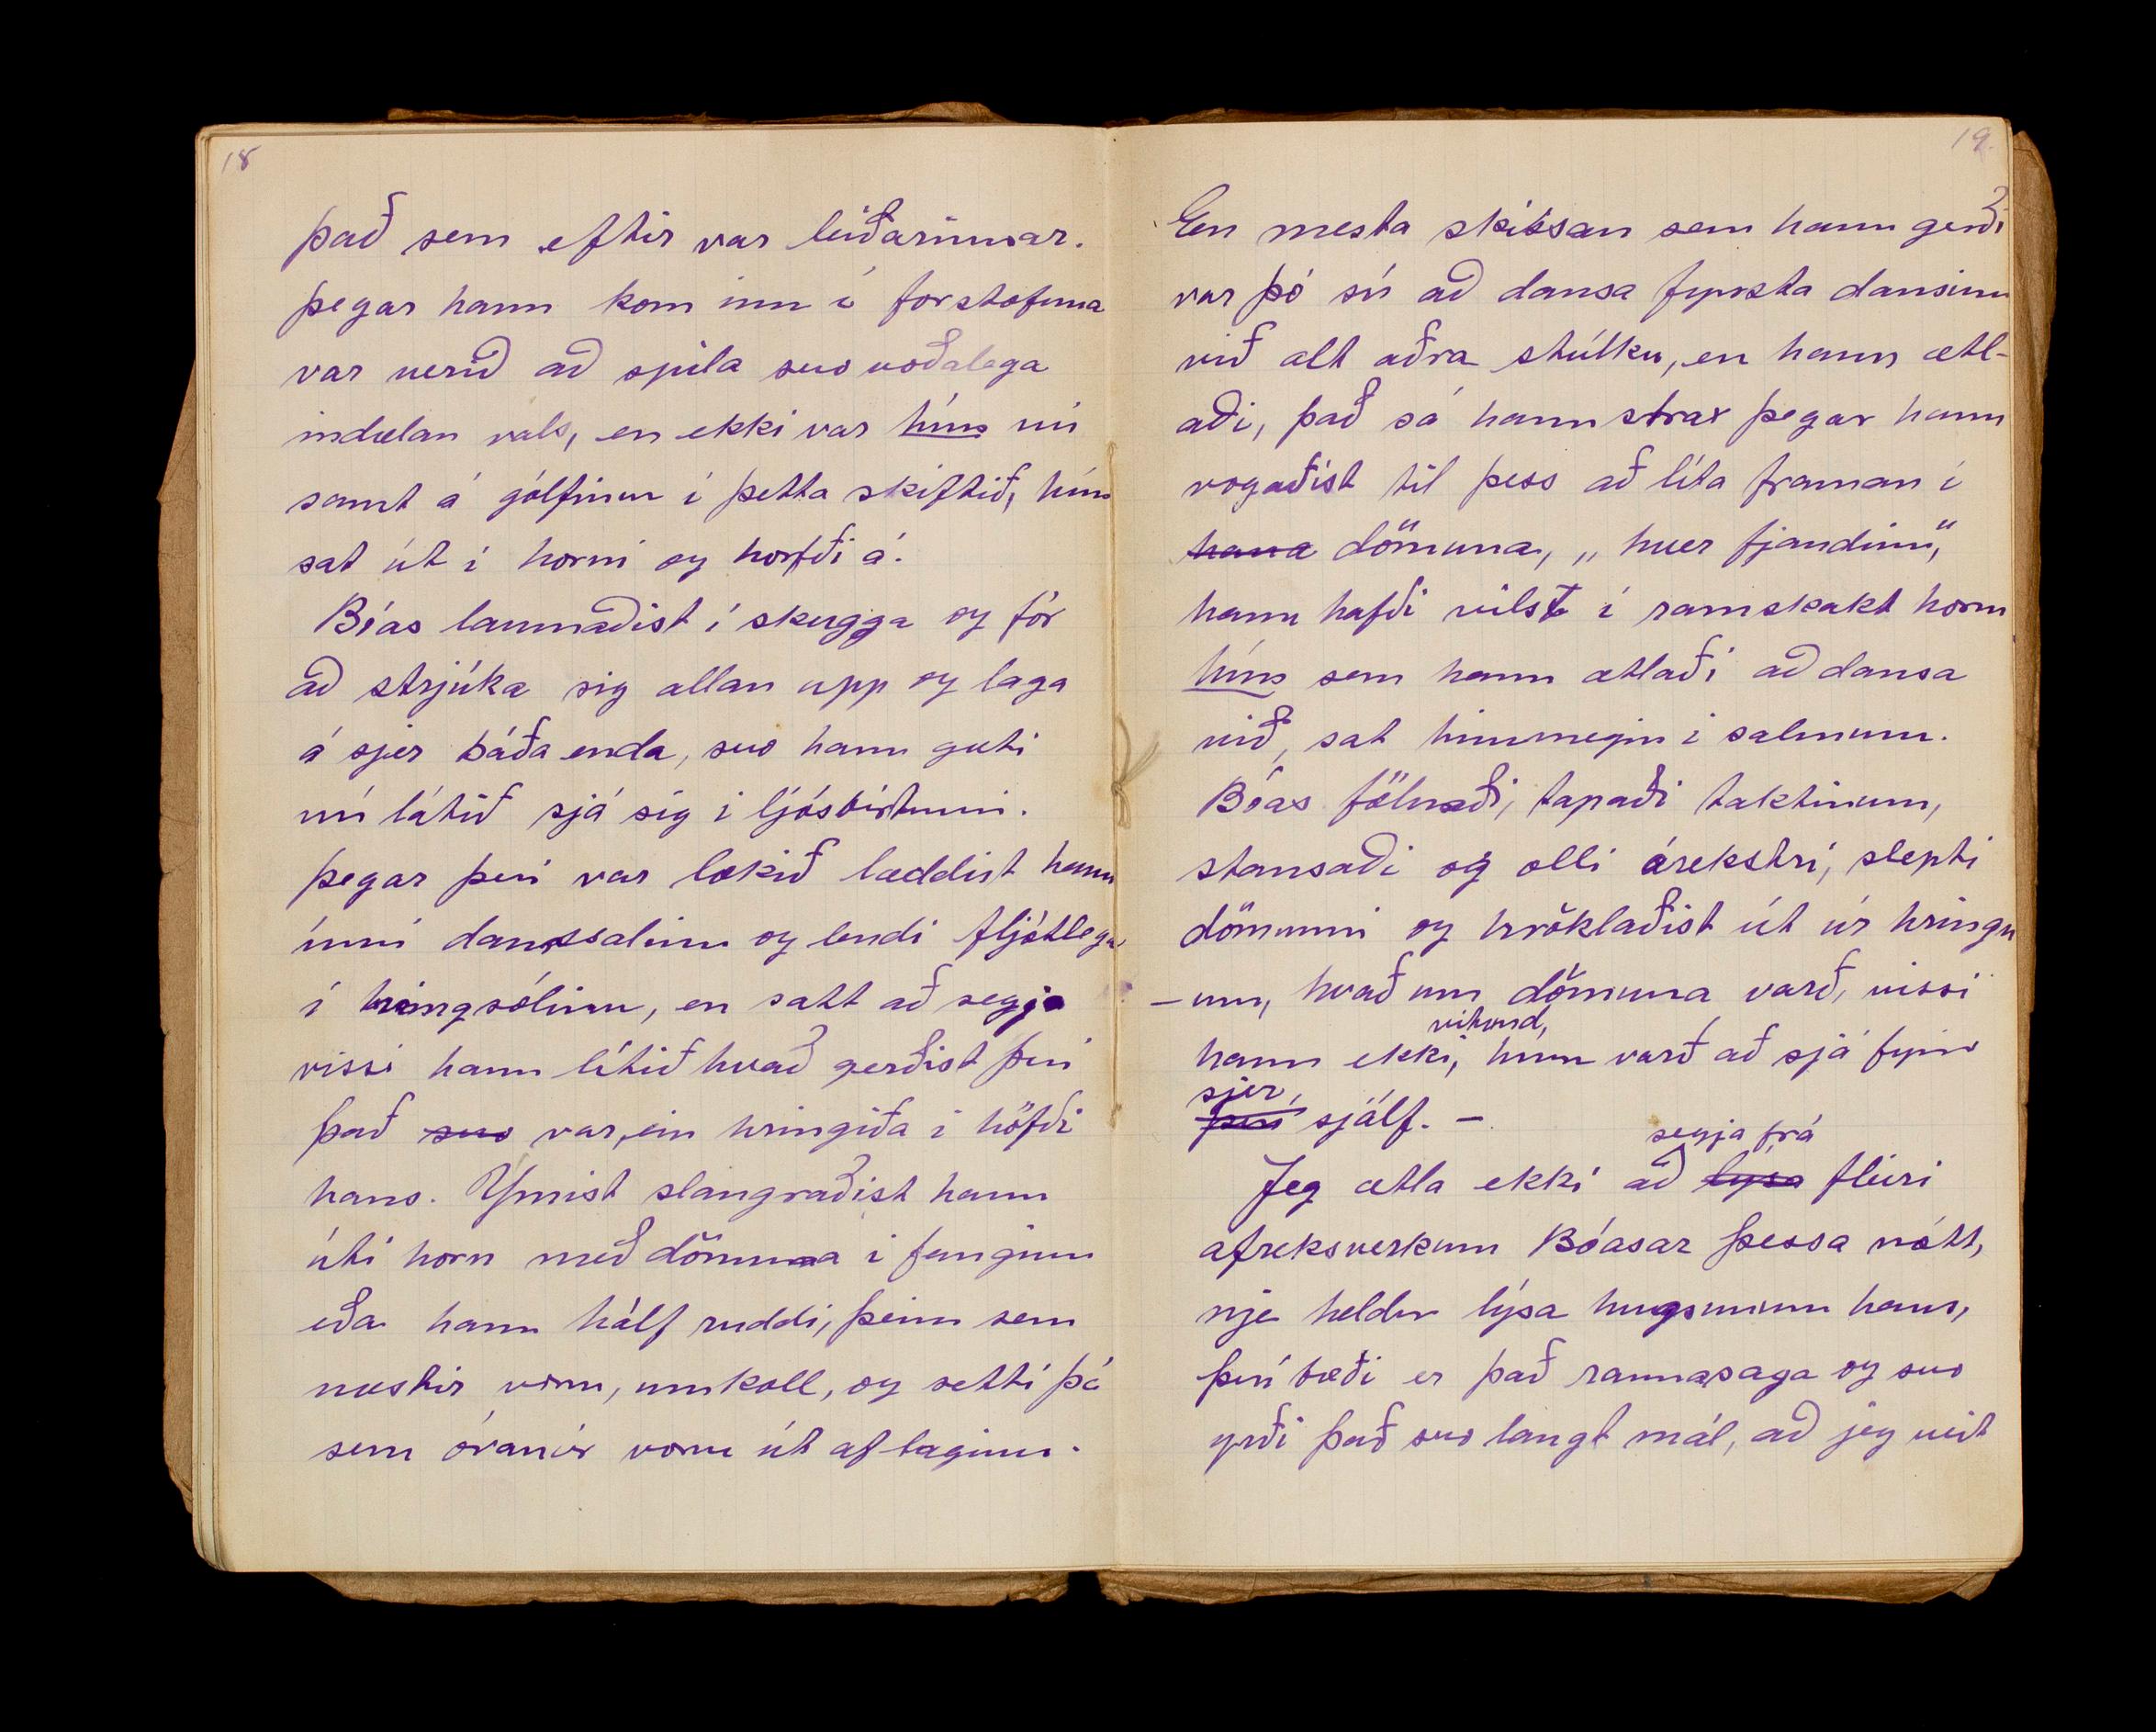 18
það sem eftir var leiðarinnar.
þegar hann kom inn í forstofuna
var verið að spila svo voðalega
indælan vals, en ekki var hún nú
samt á gólfinu í þetta skiftið, hún
sat út í horni og horfði á.
Bóas laumaðist í skugga og fór
að strjúka sig allan upp og laga
á sjer báða enda, svo hann gæti
nú látið sjá sig i ljósbirtunni.
þegar því var lokið læddist hann
inní danssalinn og lendi fljótlega
í hringsólinu, en satt að segja
vissi hann lítið hvað gerðist því
það svo var, ein hringiða i höfði
hans. Ýmist slangraðist hann
útí horn með dömuna i fanginu
eða hann hálf ruddi, þeim sem
næstir voru, umkoll, og setti þá
sem óvanir voru út af laginu.
19.
En mesta skissan sem hann gerði
var þó sú að dansa fyrsta dansinn
við alt aðra stúlku, en hann ætl-
aði, það sá hann strax þegar hann
vogaðist til þess að líta framan í
hana dömuna, „hver fjandinn",
hann hafði vilst í ramskakt horn
hún sem hann ætlaði að dansa
við, sat hinumegin i salnum.
Bóas fölnaði, tapaði taktinum,
stansaði og olli árekstri, slepti
dömunni og hröklaðist út úr hringn
-um, hvað um dömuna varð, vissi
vitund,
hann ekki, hún varð að sjá fyrir
sjer,
því sjálf. -
segja frá
Jeg ætla ekki að lýsa fleiri
afreksverkum Bóasar þessa nótt,
nje heldur lýsa hugsunum hans,
því bæði er það raunasaga og svo
yrði það svo langt mál, að jeg veit